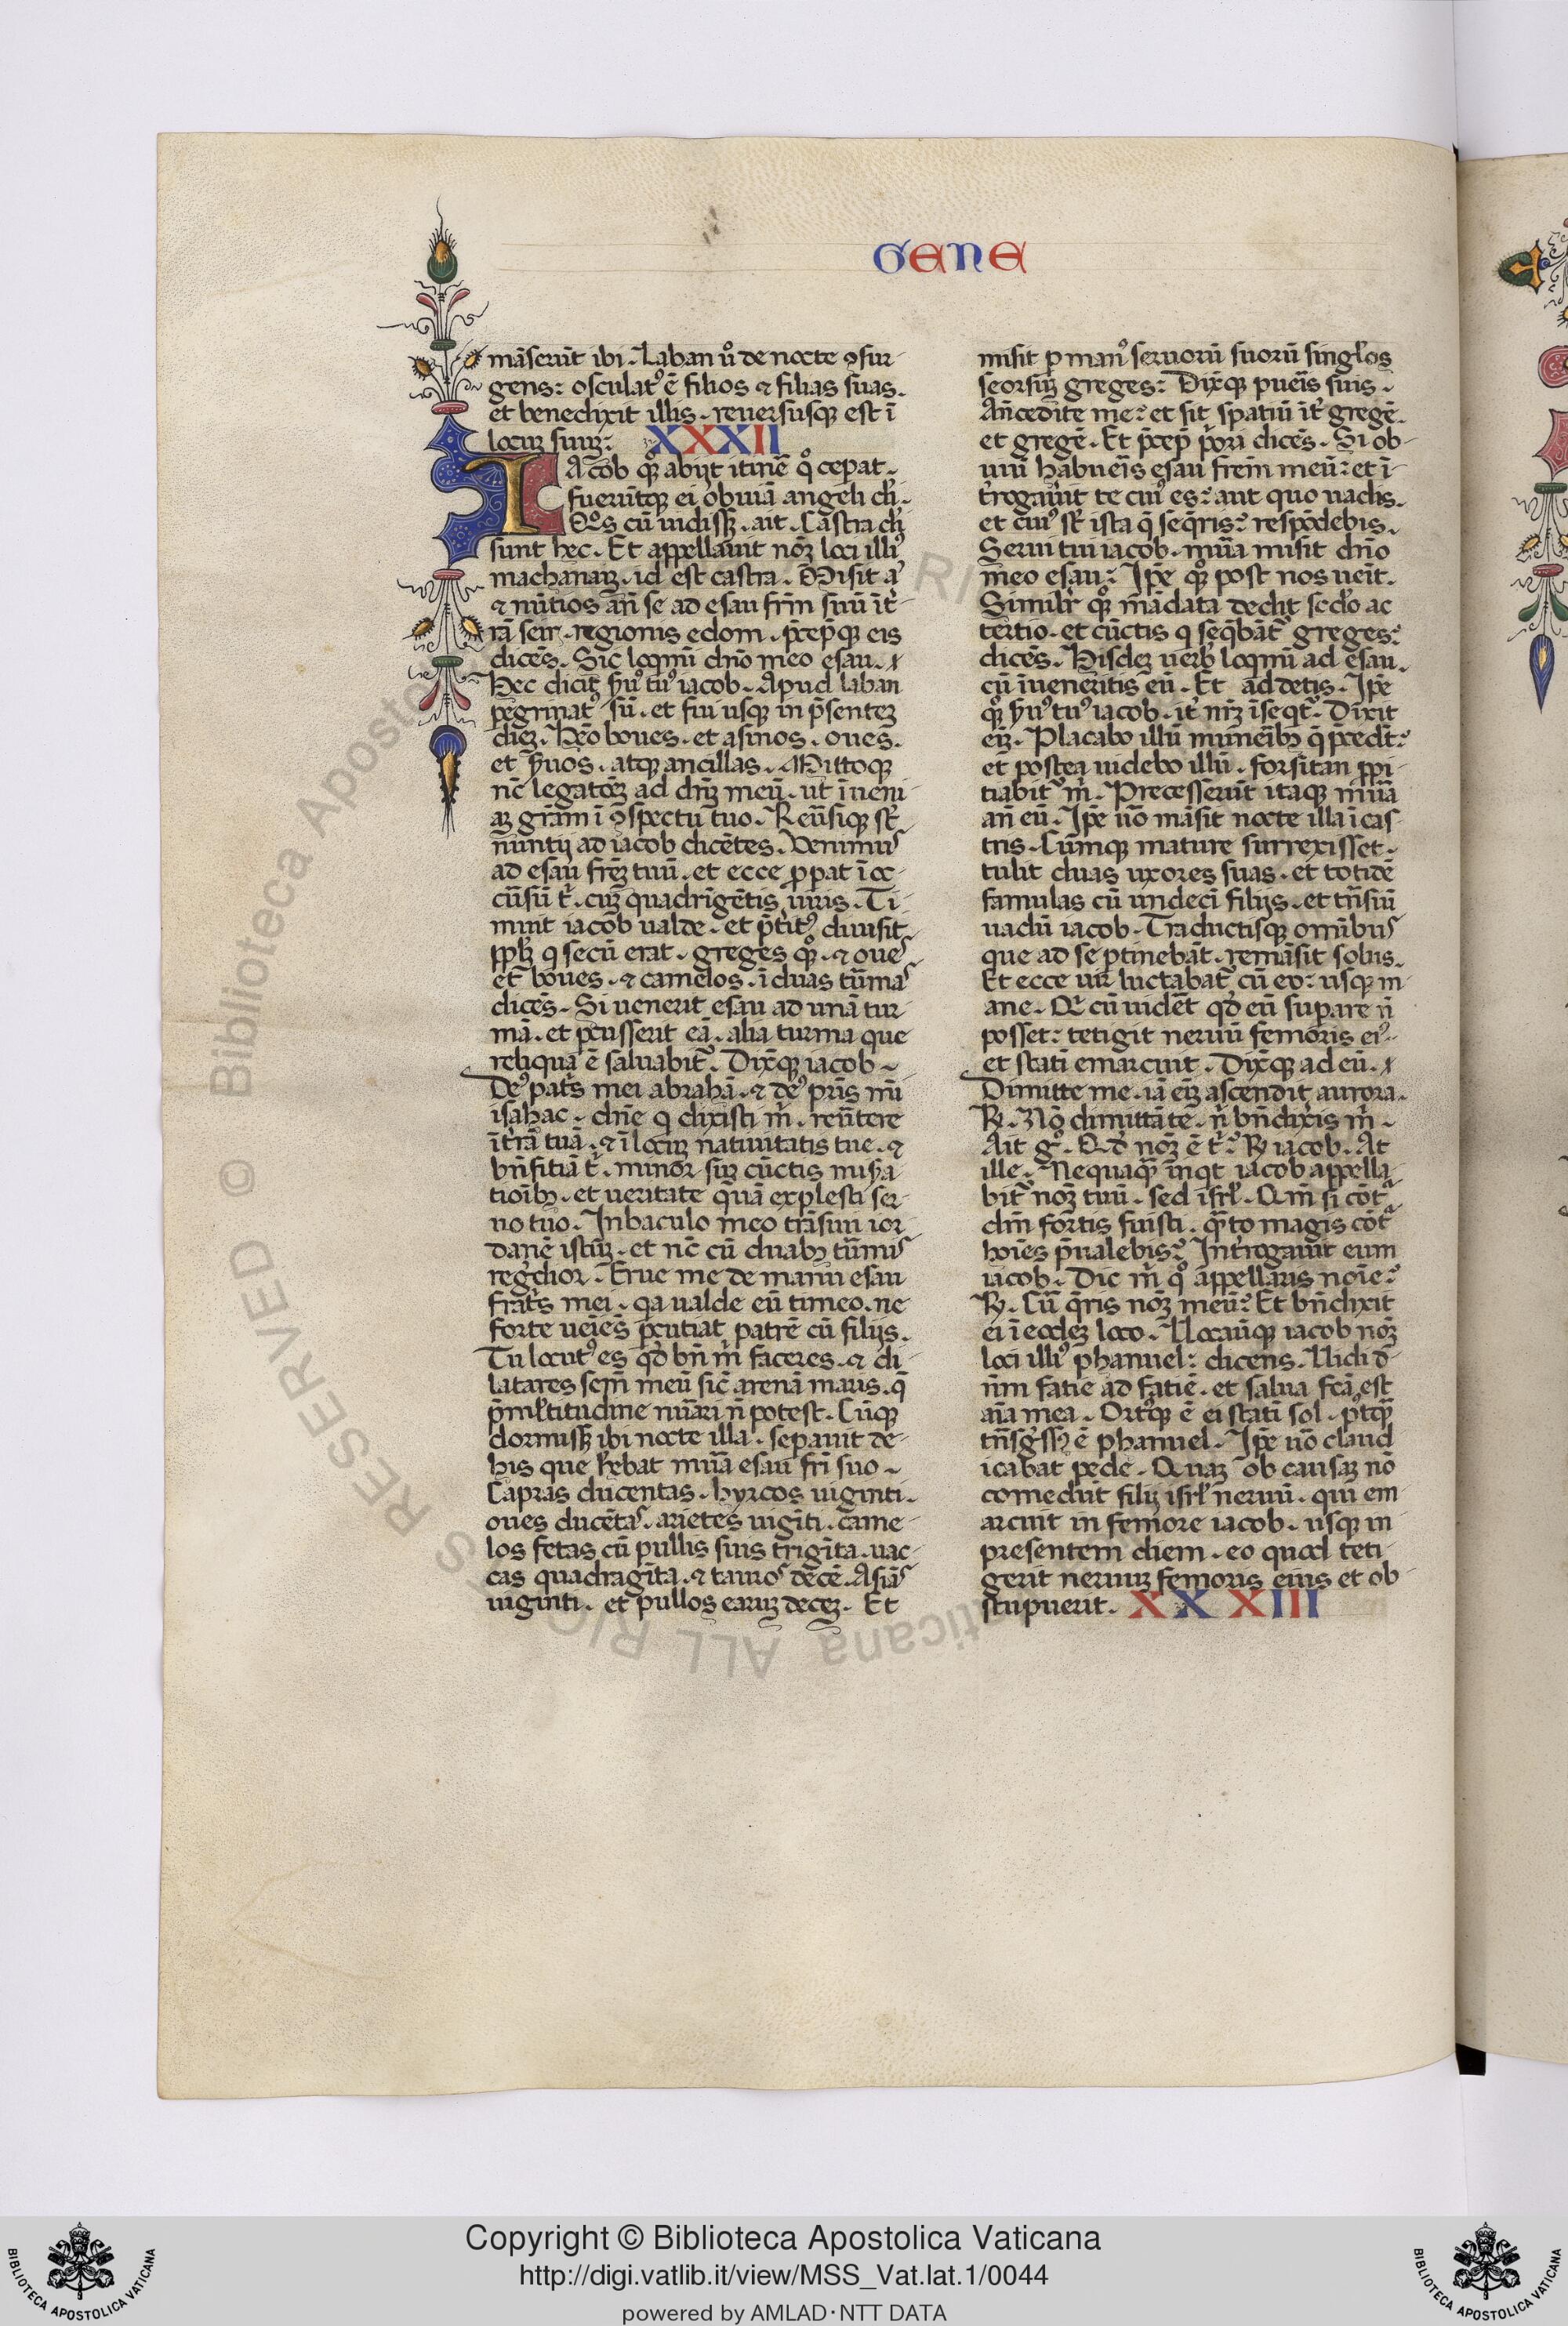 GENE
mãserũt ibi. Laban ũo de nocte ꝯsur-
gens: osculatꝰ ẽ filios ⁊ filias suas.
et benedixit illis. reuersusqꝫ est ĩ
locuꝫ suuꝫ: XXXII
IAcob qꝫ abijt itinẽ qo cepat.
fuerũtqꝫ ei obuiã angeli di.
Qos cũ uidissꝫ. ait. Castra di
sunt hec. Et appellauit noꝫ loci illiꝰ
machanaiꝫ. id est castra. Misit aͥ
⁊ nũtios añ se ad esau frm̃ suũ ĩ t̃
rã seir. regionis edom. p̃cep̃qꝫ eis
dicẽs. Sic loqmĩ dño meo esau.
Hec dicit fr̃ tuꝰ iacob. Apud laban
pegrinatꝰ sũ. et fui usqꝫ in p̃senteꝫ
dieꝫ. Hẽo boues. et asinos. oues.
et s̃uos. atqꝫ ancillas. Mittoqꝫ
nc̃ legatoꝫ ad dñꝫ meũ. ut ĩueni
aꝫ grãm ĩ ꝯspectu tuo. Reũsiqꝫ st̃
nuntij ad iacob dicẽtes. Venimus
ad esau frẽꝫ tuũ. et ecce ꝓpat ĩ oc-
cũsũ t̃. cuꝫ quadrĩgẽtis uiris. Ti-
muit iacob ualde. et p̃titꝰ diuisit
pplꝫ q secũ erat. greges qꝫ. ⁊ oues
et boues. ⁊ camelos. ĩ duas tũmas
dicẽs. Si uenerit esau ad unã tur-
mã. et pcusserit eã. alia turma que
reliqua ẽ saluabit̃. Dix̃qꝫ iacob.
Deꝰ pat̃s mei abrahã. ⁊ deꝰ pr̃is mĩ
isahac. dñe q dixisti m̃. reũtere
ĩ t̃rã tuã. ⁊ ĩ locuꝫ natiuitatis tue. ⁊
bñfitiã t̃. minor suꝫ cũctis mis̃a
tioĩbꝫ. et ueritate quã explesti ser-
uo tuo. In baculo meo trãsiui ior
danẽ istuꝫ. et nc̃ cũ duabꝫ tũmis
reg̃dior. Erue me de manu esau
frat̃s mei. qa ualde eũ timeo. ne
forte ueĩes p̃cutiat patrẽ cũ filijs.
Tu locutꝰ es qd̃ bñ m̃ faceres. ⁊ di
latares sem̃ meũ sic̃ arenã maris. q̃
p̃ ml̃titudine nũari ñ potest. Cũqꝫ
dormissꝫ ibi nocte illa. sepauit de
his que hẽbat mũa esau fr̃i suo.
Capras ducentas. hyrcos uiginti.
oues ducẽtas. arietes uigĩti. came-
los fetas cũ pullis suis trigĩta. uac-
cas quadragĩta. ⁊ tauros decẽ. Asias
uiginti. et pullos earuꝫ deceꝫ. Et
misit p manꝰ seruorũ suorũ singl̃os
seorsuꝫ greges: Dix̃qꝫ puẽis suis.
Añcedite me: et sit spatiũ ĩt̃ gregẽ.
et gregẽ. Et p̃cep̃ p̃ori dicẽs. Si ob-
uiũ habueris esau frem̃ meũ: et ĩ-
t̃rogauit te cuiꝰ es: aut quo uadis.
et cuiꝰ st̃ ista q̃ seq̃ris: respõdebis.
Serui tui iacob. mũa misit dño
meo esau: Ip̃e qꝫ post nos ueĩt.
Simil̃r qꝫ mãdata dedit secdo ac
tertio. et cũctis q seq̃bãt̃ greges:
dicẽs. Hisdeꝫ uerbꝫ loqmĩ ad esau.
cũ ĩueneritis eũ. Et addetis. Ip̃e
qꝫ fr̃ tuꝰ iacob. it̃ nr̃ꝫ ĩseqt̃. Dixit
eĩꝫ. Placabo illũ munerĩbꝫ q̃ p̃cedũt:
et postea uidebo illũ. forsitan ꝓpi-
tiabit̃ m̃. Precesserũt itaqꝫ mũa
añ eũ. Ip̃e ũo mãsit nocte illa ĩ cas-
tris. Cũmqꝫ mature surrexisset.
tulit duas uxores suas. et totidẽ
famulas cũ undeci filijs. et trñsiũ
uadũ iacob. Traductisqꝫ omĩbus
que ad se ptinebãt. remãsit solus.
Et ecce uir luctabat̃ cũ eo: usqꝫ m
ane. Qi cũ uidẽt qd̃ eũ supare ñ
posset: tetigit neruũ femoris eiꝰ.
et stati emarcuit. Dix̃qꝫ ad eũ.
Dimitte me. iã eĩꝫ ascendit aurora.
Rꝫ. Nõ dimittã te. ñ bñdixris m̃.
Ait gꝰ. Qd̃ noꝫ ẽ t̃: Rꝫ iacob. At
ille. Nequaqꝫ inqt iacob appella
bit̃ noꝫ tuũ. sed isrl̃. Qm̃ si cõt̃
dm̃ fortis fuisti. q̃to magis cõt̃
hoĩes p̃ualebis: Int̃rogauit eum
iacob. Dic m̃ qo appellaris noĩe:
Rꝫ. Cũ q̃ris noꝫ meũ: Et bñdixit
ei ĩ eodeꝫ loco. Uocauitqꝫ iacob noꝫ
loci illiꝰ phanuel: dicens. Uidi d-
ñm fatie ad fatiẽ. et salua fcã est
aĩa mea. Ort̃qꝫ ẽ ei stati sol. p̃tqꝫ
trñsg̃ssꝰ ẽ phanuel. Ip̃e ũo claud
icabat pede. Quaꝫ ob causaꝫ nõ
comedũt filij isrl̃ neruũ. qui em
arcuit in femore iacob. usqꝫ in
presentem diem. eo quod teti
gerit neruuꝫ femoris eius et ob
stupuerit. XXXIII
Copyright © Biblioteca Apostolica Vaticana
http://digi.vatlib.it/view/MSS_Vat.lat.1/0044
powered by AMLAD·NTT DATA